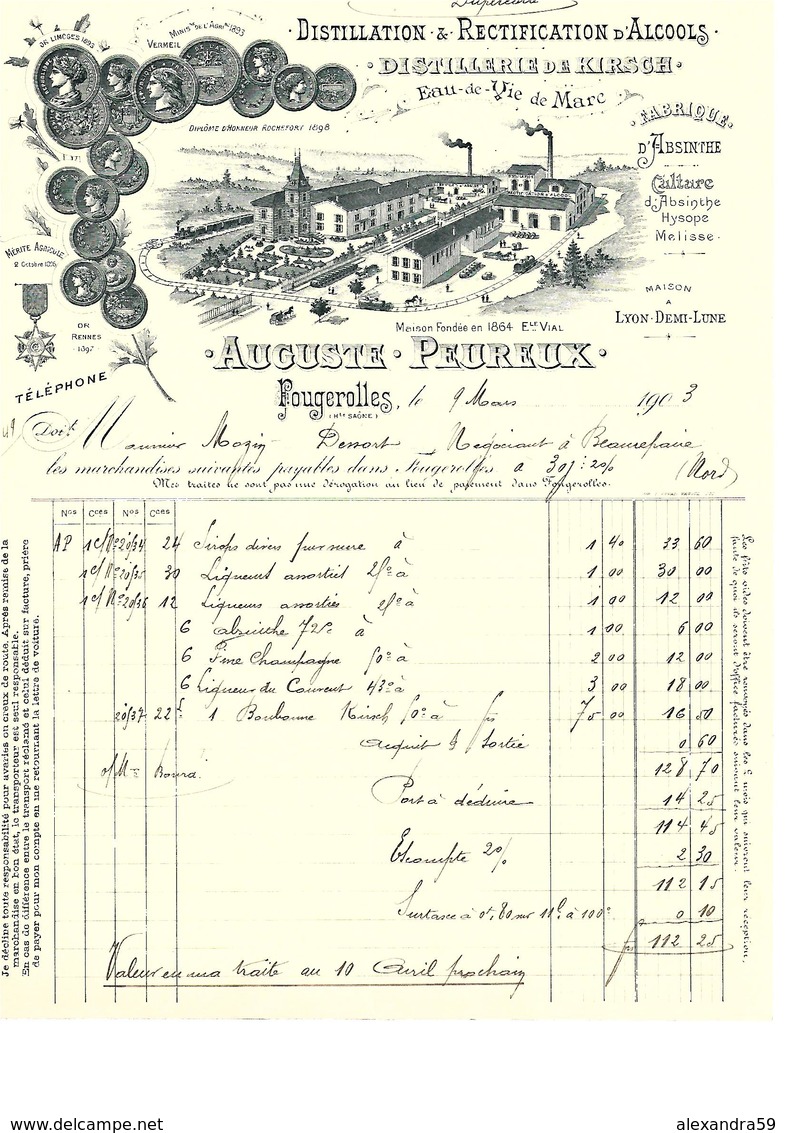 Supérieure
DISTILLATION & RECTIFICATION D'ALCOOLS
DISTILLERIE DE KIRSCH
Eau-de-Vie de Marc
FABRIQUE
D'ABSINTHE
Culture
d'Absinthe
Hysope
Melisse
MAISON
A
LYON-DEMI-LUNE
OR LIMOGES 1893
MINISre DE L'AGRIre 1893
VERMEIL
DIPLÔME D'HONNEUR ROCHEFORT 1898
MÉRITE AGRICOLE
OR
RENNES
1897
TÉLÉPHONE
Maison Fondée en 1864 Ele VIAL
AUGUSTE PEUREUX
Fougerolles, le 9 Mars 1903
(Hte SAÔNE)
Doit Monsieur Mozin Dessort Negociant à Beaurepaire
les marchandises suivantes payables dans Fougerolles a 30j: 2% (Nord)
Mes traites ne sont pas une dérogation au lieu de payement dans Fougerolles.
Nos Cces Nos Cces
AP 1 c/ No 20/34 24 Sirops divers pur sucre à 1 40 33 60
1 c/ No 20/35 30 Liqueurs assorties 25° à 1 00 30 00
1 c/ No 20/36 12 Liqueurs assorties 25° à 1 00 12 00
6 absinthe 72° à 1 00 6 00
6 Fine Champagne 50° à 2 00 12 00
6 Liqueur du Couvent 43° à 3 00 18 00
20/37 22 l 1 Bonbonne Kirsch 50° à frs 75 00 16 50
Acquit & Sortie 0 60
128 70
Port à déduire 14 25
114 45
Escompte 2% 2 30
112 15
Surtaxe à 0f,80 sur 11l à 100° 0 10
frs 112 25
Valeur en ma traite au 10 Avril prochain
Je décline toute responsabilité pour avaries ou creux de route. Après remise de la
marchandise en bon état, le transporteur est seul responsable.
En cas de différence entre le transport réclamé et celui déduit sur facture, prière
de payer pour mon compte en me retournant la lettre de voiture.
Les fûts vides doivent être renvoyés dans les 2 mois qui suivront leur réception,
faute de quoi ils seront d'office facturés suivant leur valeur.
www.delcampe.net
alexandra59